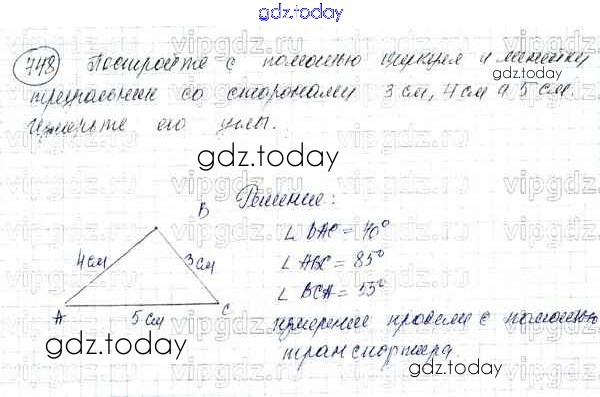 gdz.today
748 Постройте с помощью циркуля и линейки
треугольник со сторонами 3 см, 4 см и 5 см.
Измерьте его углы.
gdz.today
Решение:
B
∠ BAC = 40°
4 см
3 см
∠ ABC = 85°
∠ BCA = 55°
A
5 см
C
измерение провели с помощью
транспортира.
gdz.today
gdz.today